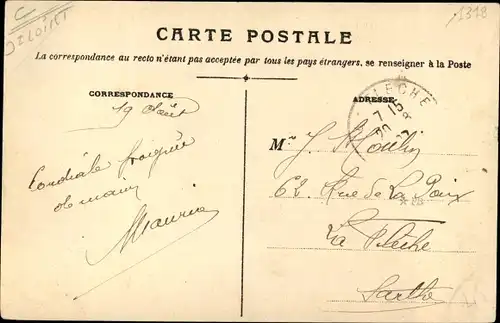 C
1318
CARTE POSTALE
La correspondance au recto n'étant pas acceptée par tous les pays étrangers, se renseigner à la Poste
CORRESPONDANCE
19 Août
Cordiale poignée
de main
Maurice
ADRESSE
FLECHE
7 15
20 8
Mr J. Moulin
62 Rue de La Paix
La Flèche
Sarthe